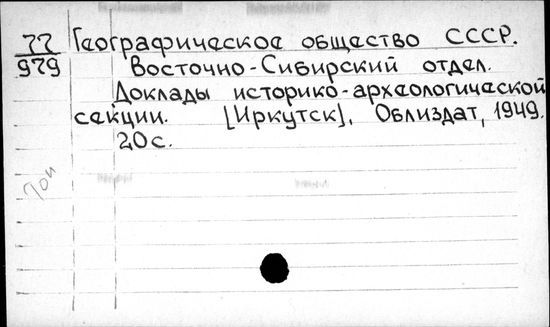 77 Географическое общество СССР.
979 Восточно-Сибирский отдел.
Доклады историко-археологической
секции. [Иркутск], Облиздат, 1949.
20с.